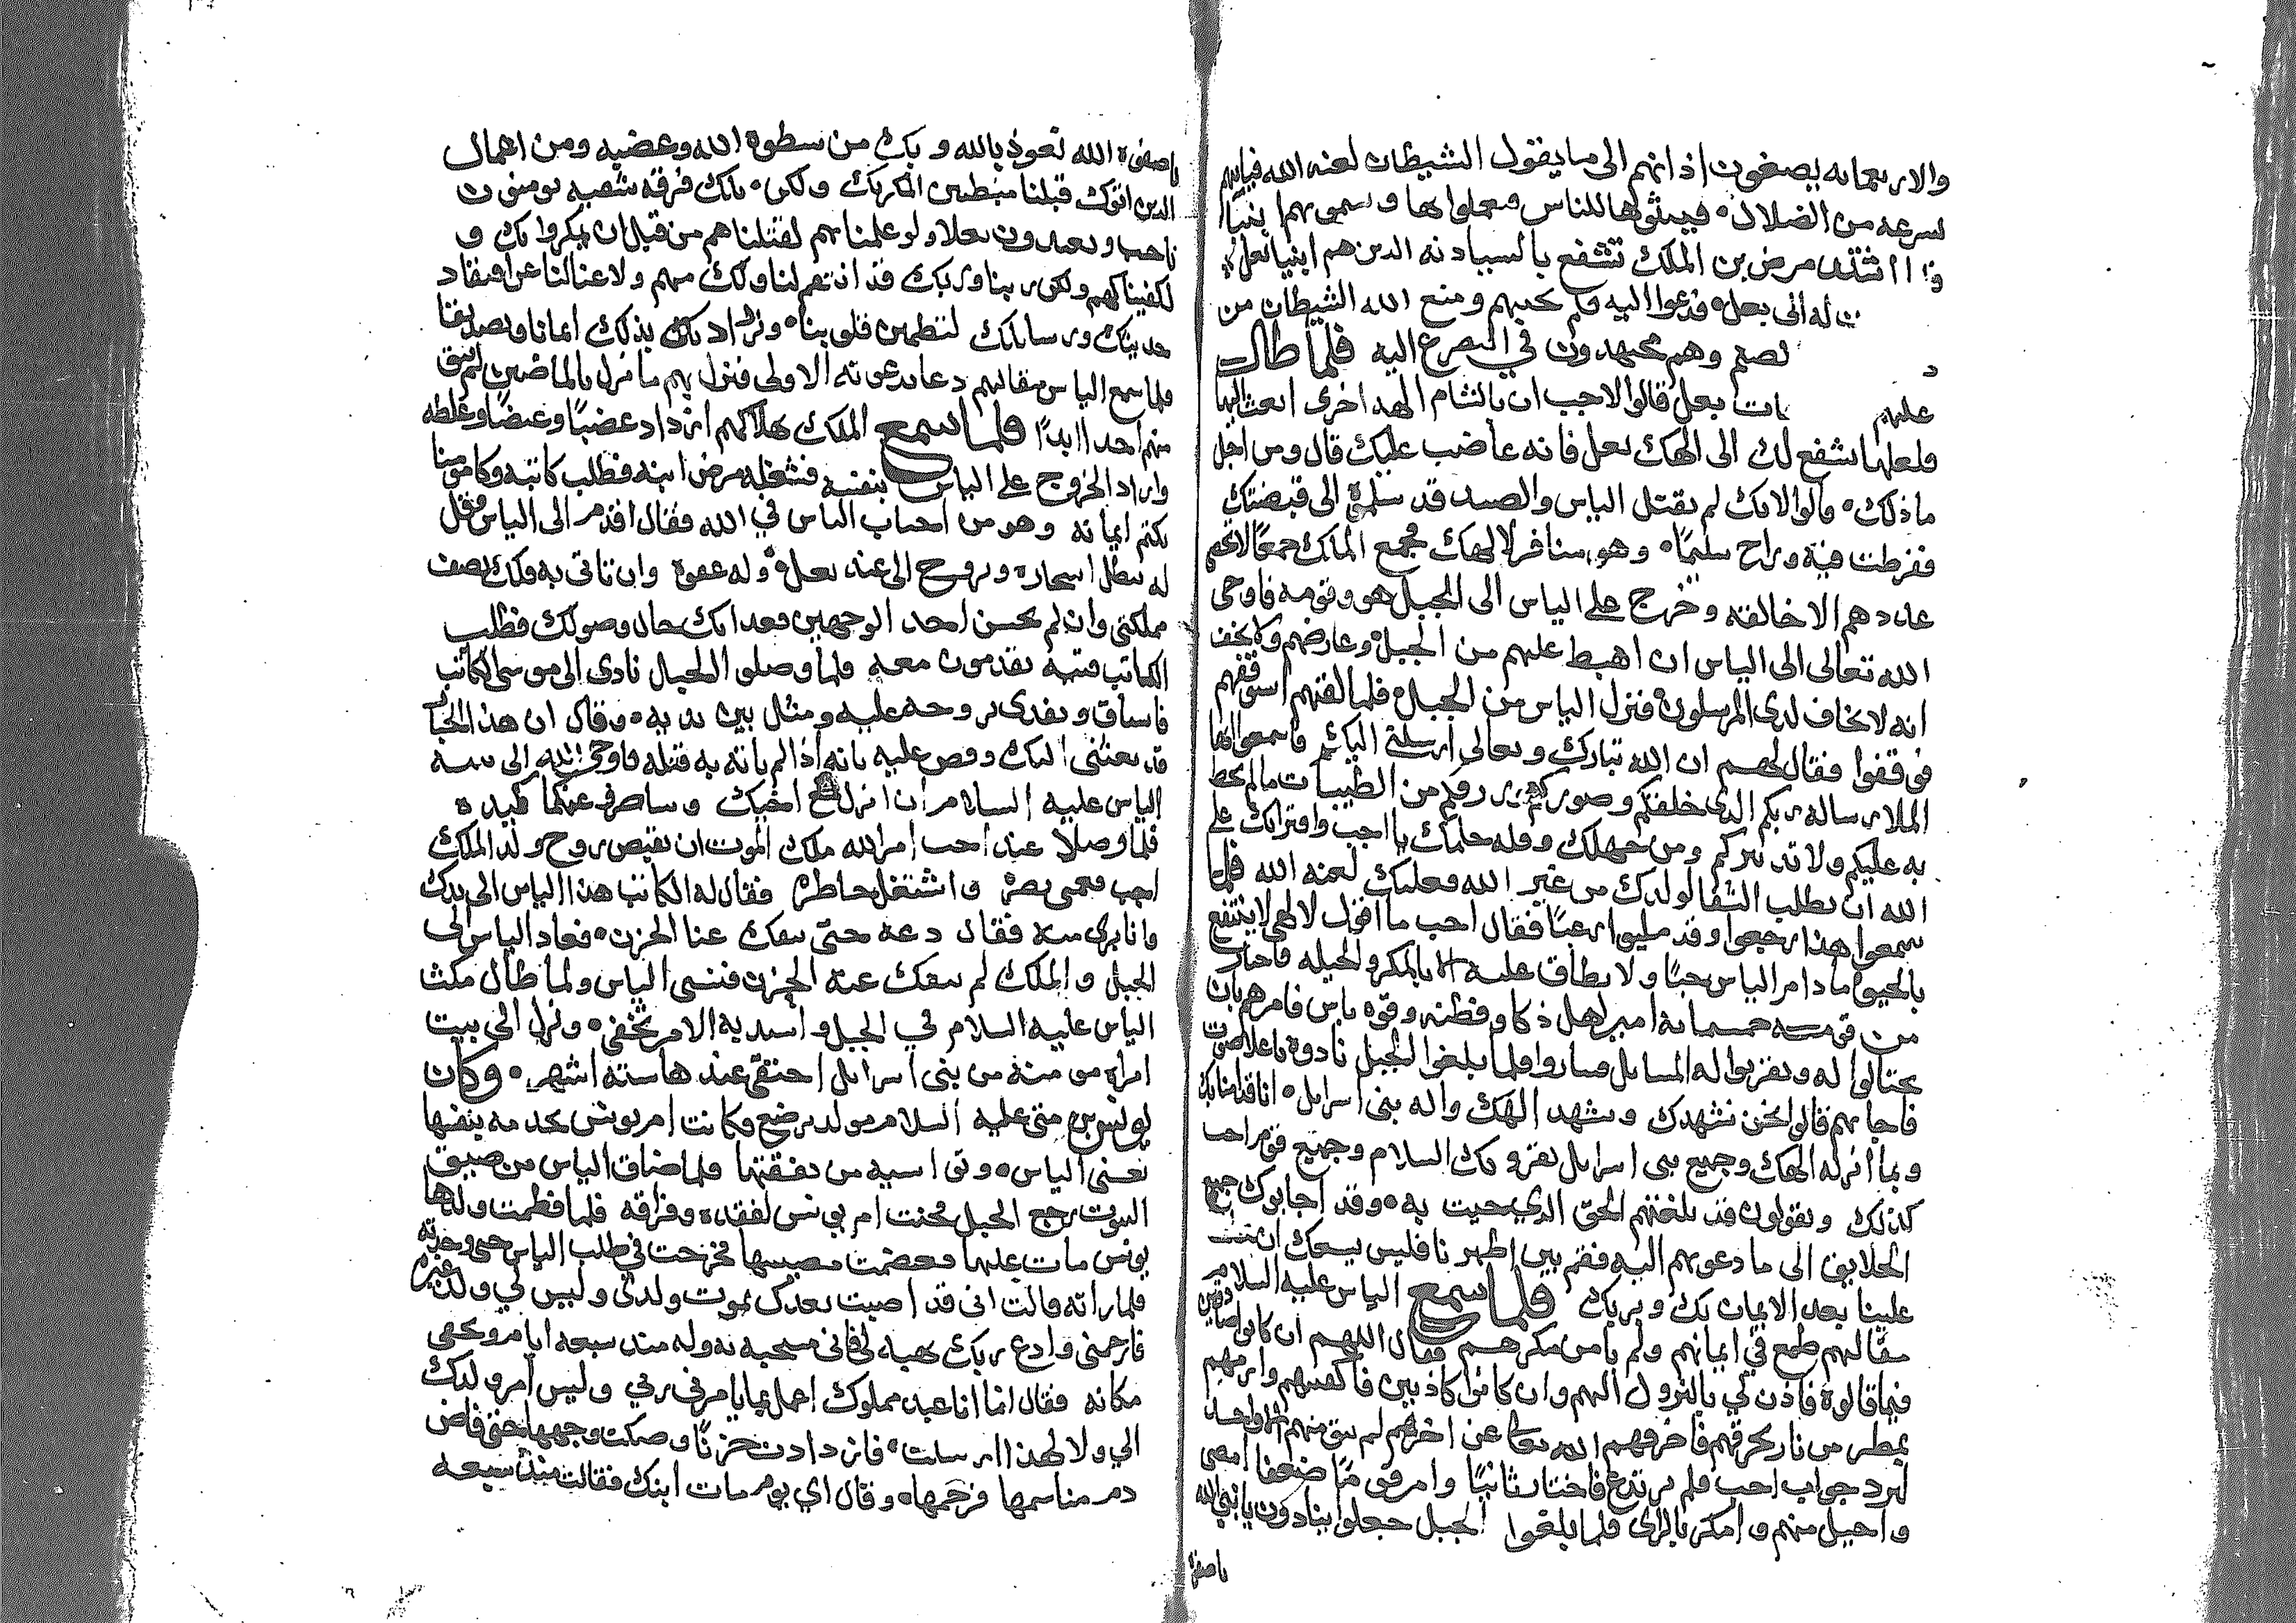 والاربعمايه يصغون اذانهم الى ما يقول الشيطان لعنه الله فياتيهم
لسرعه من الضلال فيبثوها للناس ويعملوا بها ويسموهم انبيا
اشتد مرض بن الملك تشفع بالسبادنه الدين هم انبيا بعل
له الى بعل فدعوا اليه فلم يجيبهم ومنع الله الشيطان من
وهم مجتهدون في التضرع اليه فلما طال
عليهم بعل قالوا لاجب ان بالشام الهه اخرى ابعث اليها
فلعلها تشفع لك الى الهك بعل فانه غاضب عليك قال ومن اجل
ماذلك قالوا لانك لم تقتل الياس والصيد قد سلمه الى قبضتك
ففرطت فيه وراح سليما وهو منافر لالهك فجمع الملك جمعا لا يحصى
عددهم الا خالقه وخرج على الياس الى الجبل هو وقومه فاوحى
الله تعالى الى الياس ان اهبط عليهم من الجبل وعارضهم ولا تخف
انه لا يخاف لدى المرسلون فنزل الياس من الجبل فلما لقيهم استوقفهم
فوقفوا فقال لهم ان الله تبارك وتعالى ارسلني اليكم فاسمعوا ايها
الملا رساله ربكم الذى خلقكم وصوركم ورزقكم من الطيبات ما لم يحط
به عليكم ولا تدبيركم ومن جهلك وقله حلمك يا اجب وافترائك على
الله ان تطلب الشفا لولدك من غير الله فعليك لعنه الله فلما
سمعوا هذا رجعوا وقد مليوا رعبا فقال اجب ما اقول لالهي لا ينتفع
بالحيوه ما دام الياس حيا ولا يطاق عليه الا بالمكر والحيله فاختار
من قومه خمسمايه امير اهل ذكا وفطنه وقوه باس فامرهم بان
يحتالوا له ويقربوا له المسايل فساروا فلما بلغوا الجبل نادوه باعلا صوت
فاجابهم قالوا نحن نشهدك ونشهد الهك واله بنى اسرايل انا قد امنا بك
وبما انزله الهك وجميع بنى اسرايل يقروك السلام وجميع قوم اجب
كذلك ويقولون قد بلغتهم الحق الذي جيت به وقد اجابوك جميع
الخلايق الى ما دعوتهم اليه فقم بين اظهرنا فليس يسعك ان
علينا بعد الايمان بك وبربك فلما سمع الياس عليه السلام
مقالهم طمع في ايمانهم ولم يامن مكرهم فقال اللهم ان كانوا صادقين
فيما قالوه فاذن لي بالنزول اليهم وان كانوا كاذبين فاكفنيهم وارمهم
بمطر من نار يحرقهم فاحرقهم الله تعالى عن اخرهم لم يبق منهم الا واحد
لرد جواب اجب فلم يرتدع فاختار ثانيا وامر قوما ضعفا امضى
واحيل منهم وامكر بالراى فلما بلغوا الجبل جعلوا ينادون يا نبي الله
يا صفوه
يا صفوه الله نعوذ بالله وبك من سطوه الله وغضبه ومن اهمال
الذين اتوك قبلنا مبطنين المكر بك ولكن تلك فرقه شعبه يومنون
ويعبدون بعلا ولو علمنا بهم لقتلناهم من قبل ان يمكروا بك و
لكفيناكهم ولكن ربنا وربك قد انتقم لنا ولك منهم ولا غنا لنا عن
حديثك ورسالتك لتطمين قلوبنا ونزداد بك بذلك ايمانا وتصديقا
فلما سمع الياس مقالهم دعا بدعوته الاولى فنزل بهم ما نزل بالماضين لم يبق
منهم احد ابدا فلما سمع الملك هلاكهم ازداد غضبا وغيضا وغلظه
واراد الخروج على الياس بنفسه فشغله مرض ابنه فطلب كاتبه وكان مومنا
يكتم ايمانه وهو من احباب الياس في الله فقال اقدم الى الياس وقل
له يبطل اسحاره ويروح الى عند بعل وله عفوه وان تاتى به فلك نصف
مملكتي وان لم يحسن احد الوجهين فعد انك حال وصولك فطلب
الكاتب فتيه يقدمون معه فلما وصلوا الجبال نادى الى موسى الكاتب
فانساق ويفدى بروحه عليه ومثل بين يديه وقال ان هذا الجبار
قد بعثني اليك وقص عليه بانه اذا لم ياته به قتله فاوحى الله الى نبيه
الياس عليه السلام ان انزل مع اخيك وساصرف عنكما كيده
فلما وصلا عند اجب امر الله ملك الموت ان يقبض روح ولد الملك
اجب فعمى بصره واشتغل خاطره فقال له الكاتب هذا الياس الى يدك
وانا برى منه فقال دعه حتى يفك عنا الحزن فعاد الياس الى
الجبل والملك لم يفك عنه الحزن فنسى الياس ولما طال مكث
الياس عليه السلام في الجبل واشتد به الامر تخفى ونزل الى بيت
امراه مومنه من بنى اسرايل اختفى عندها سته اشهر وكان
يونس بن متى عليه السلام مولد يرضع وكانت ام يونس تخدمه بنفسها
تعنى الياس وتواسيه من نفقتها فلما ضاق الياس من ضيق
البيوت رجع الجبل فحنت ام يونس لفقده وفراقه فلما فطمت ولدها
يونس مات عليها فعضمت مصيبتها فخرجت في طلب الياس حتى وجدته
فلما راته قالت انى قد اصبت بعدك بموت ولدى وليس لي ولد غيره
فارحمنى وادع ربك يهبه لي فانى مسجيه ندوله منذ سبعه ايام ويحيى
مكانه فقال انما انا عبد مملوك اعمل بما يامرنى ربي وليس امر ولدك
الي ولا لهذا ارسلت فازدادت حزنا وصكت وجهها حتى فاض
دم مناسمها فرحمها وقال اي يوم مات ابنك فقالت منذ سبعه